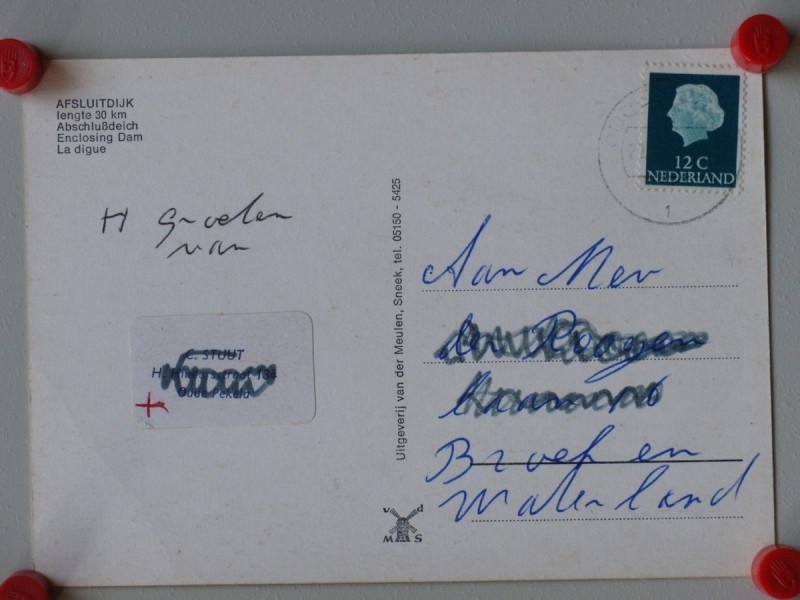 AFSLUITDIJK
lengte 30 km
Abschlußdeich
Enclosing Dam
La digue
12 C
NEDERLAND
1
H Groeten
van
C. STUUT
Oude Pekela
Uitgeverij van der Meulen, Sneek, tel. 05150 - 5425
v d
M S
Aan Mev
Broek en
Waterland